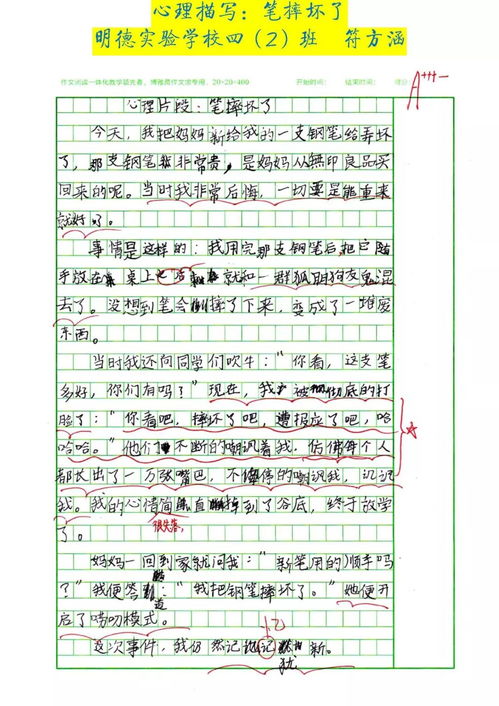 心理描写：笔摔坏了
明德实验学校四（2）班 符方涵
作文阅读一体化教学领先者，博雅苑作文馆专用，20×20=400 开始时间： 结束时间： 得分
A+++
心理片段：笔摔坏了
今天，我把妈妈新给我的一支钢笔给弄坏
了，那支钢笔非常贵，是妈妈从無印良品买
回来的呢。当时我非常后悔，一切要是能重来
就好了。
事情是这样的：我用完那支钢笔后，把它随
手放在桌上 就和一群狐朋狗友鬼混
去了。没想到笔会摔了下来，变成了一堆废
东西。
当时我还向同学们吹牛：“你看，这支笔
多好，你们有吗？”现在，我被彻底的打
脸了：“你看吧，摔坏了吧，遭报应了吧，哈
哈哈。”他们不断的嘲讽着我，仿佛每个人
都长出了一万张嘴巴，不停的嘲讽我，讥讽
我。我的心情简直掉到了谷底，终于放学
很失落，
了。
妈妈一回到家就问我：“新笔用的顺手吗
？”我便答道：“我把钢笔摔坏了。”她便开
启了唠叨模式。
这次事件，我仍然记忆犹新。